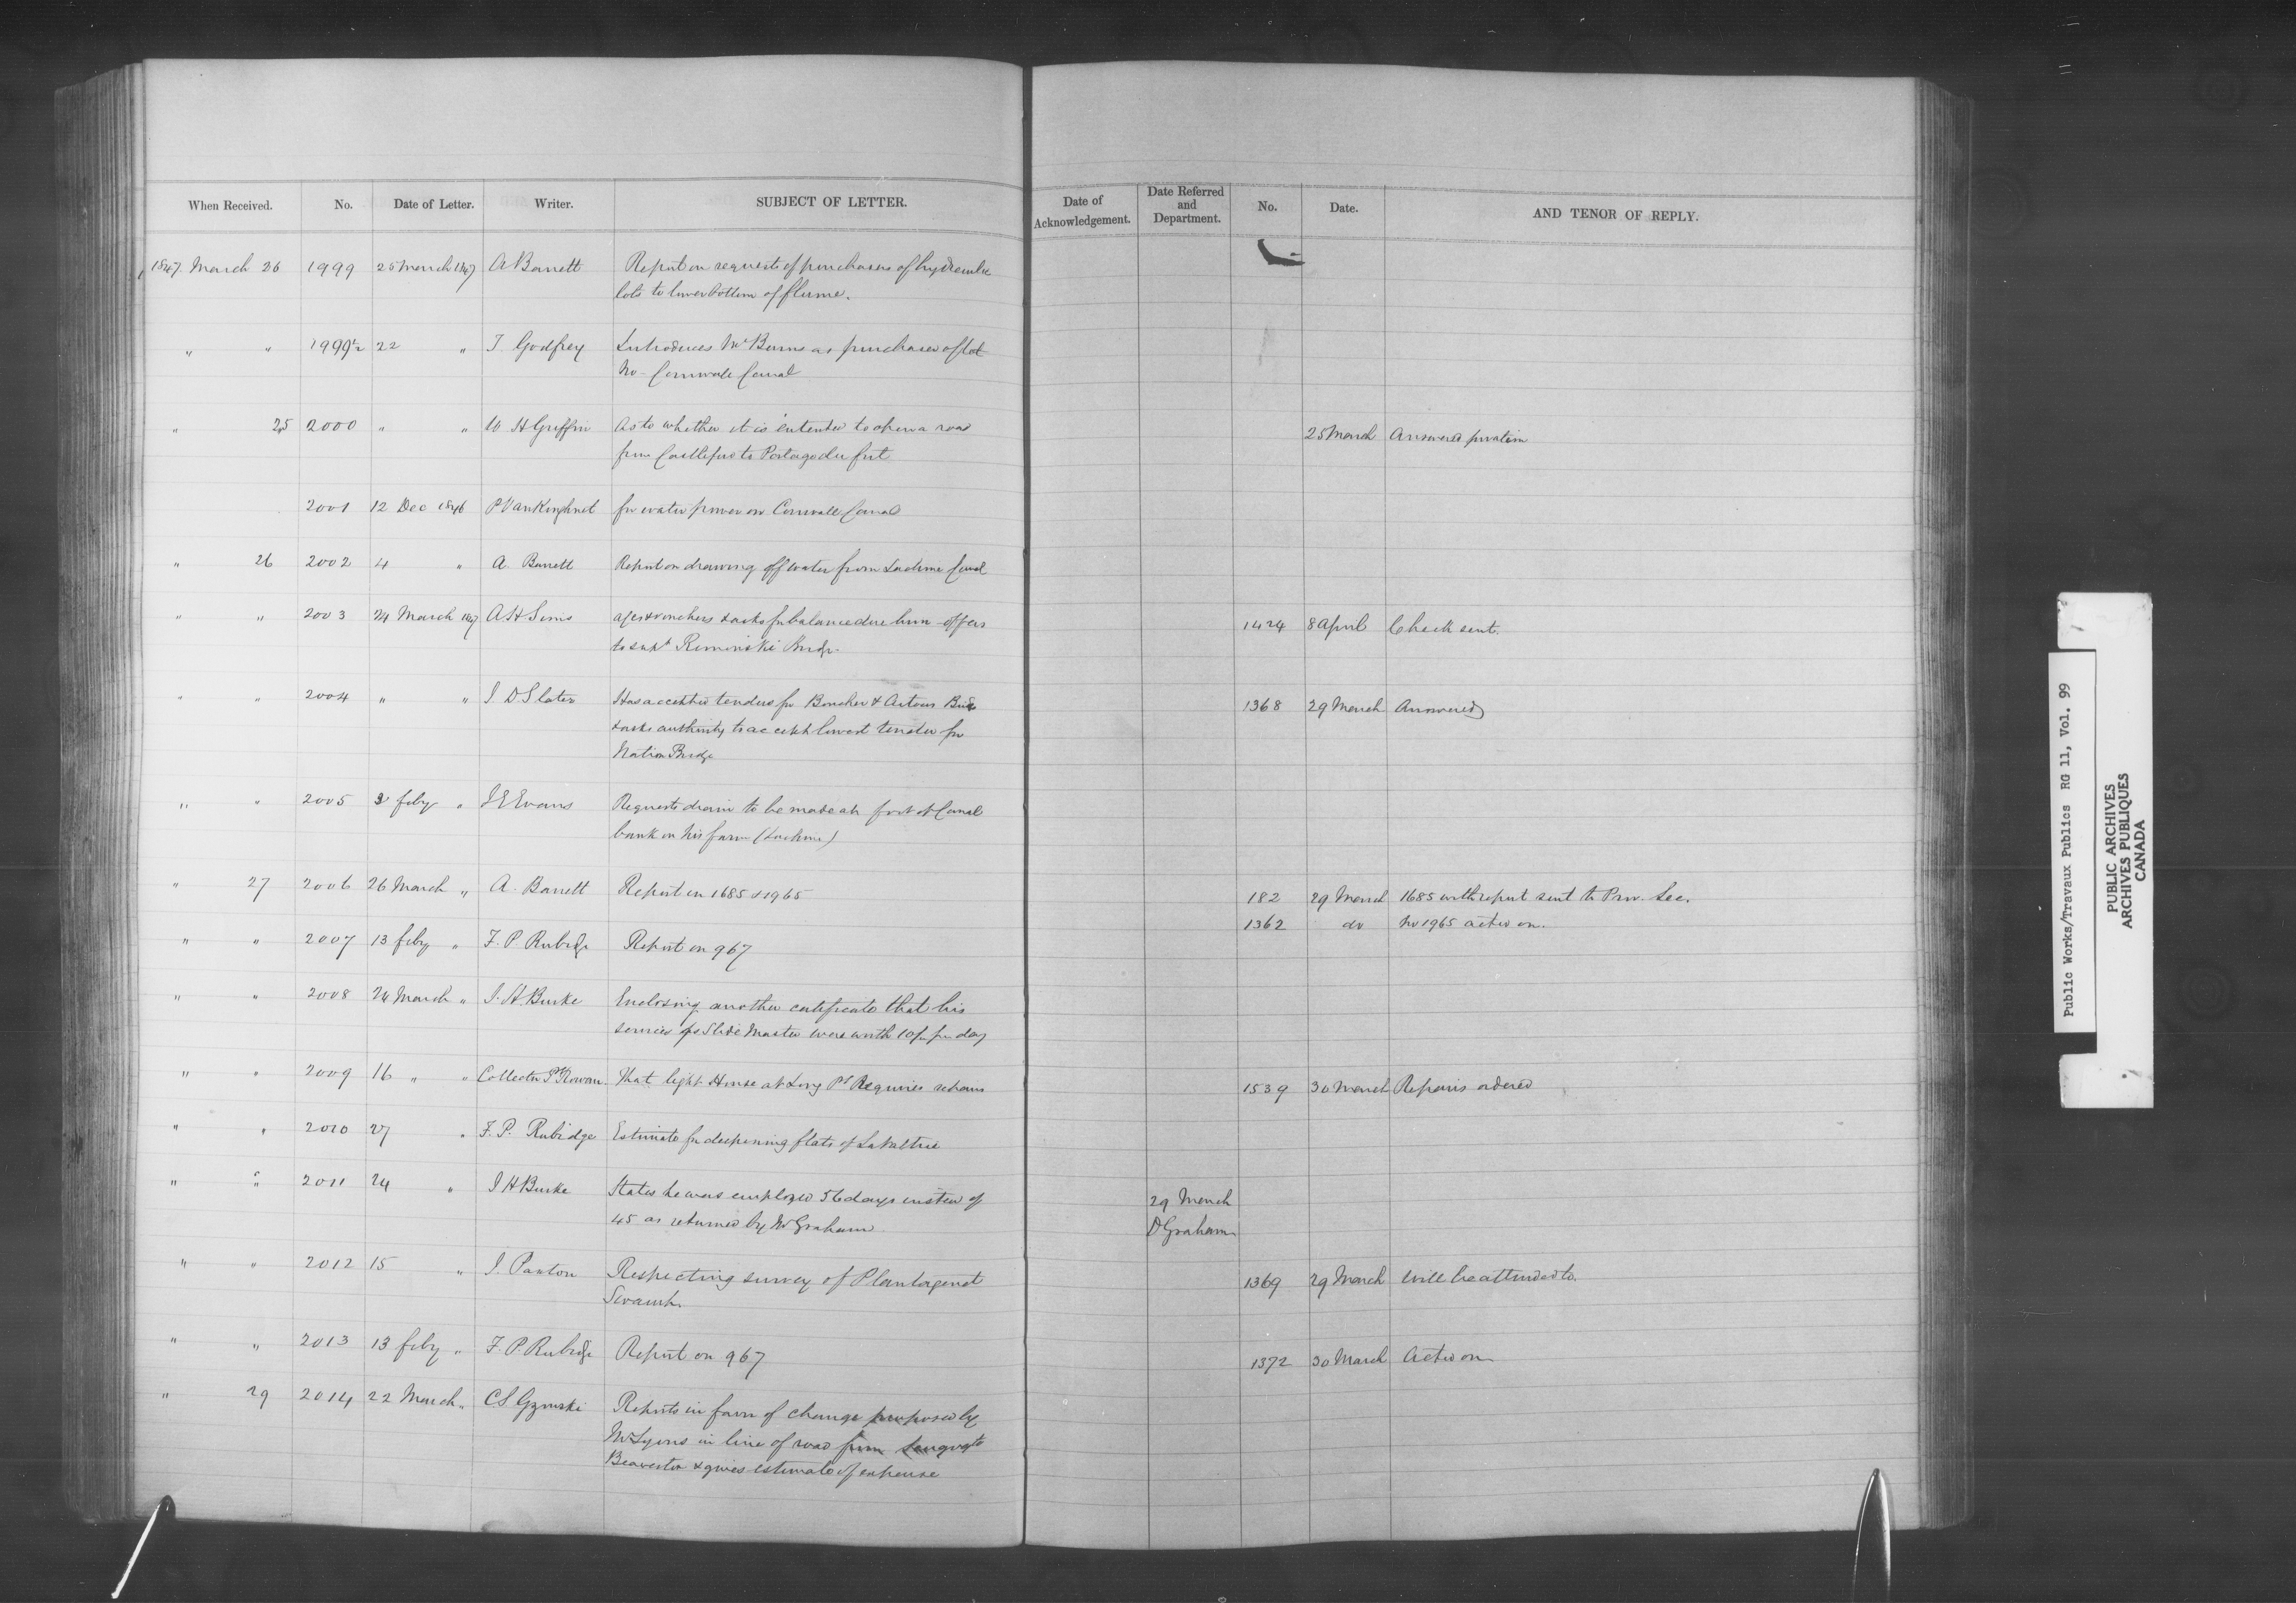 When Received. No. Date of Letter. Writer. SUBJECT OF LETTER. Date of Acknowledgement. Date Referred and Department. No. Date. AND TENOR OF REPLY.
1847. March 26 1999 25 March 1847 A Barrett Report on requests of purchasers of hydraulic
lots to lower bottom of flume.
" " 1999½ 22 " J. Godfrey Introduces Mr Burns as purchaser of lot
No - Cornwall Canal
" 25 2000 " " W H Griffin As to whether it is intended to open a road 25 March Answered privatim
from Castleford to Portage du fort
2001 12 Dec 1846 P VanKoughnet for water power on Cornwall Canal
" 26 2002 4 " A. Barrett Report on drawing off water from Lachine Canal
" " 2003 24 March 1847 A H Sims vouchers & asks for balance due him - offers 1424 8 April Check sent.
to supt Riminski Bridge
" " 2004 " " J D Slater Has accepted tenders for Boucher & Bridge 1368 29 March Answered
& asks authority to accept lowest tender for
Nation Bridge
" " 2005 3 feby " J E Evans Requests drain to be made at foot of Canal
bank on his farm (Lachine)
" 27 2006 26 March " A. Barrett Report on 1685 & 1965 182 29 March 1685 with report sent to Prov. Sec.
1362 do No 1965 acted on.
" " 2007 13 feby " F. P Rubidge Report on 967
" " 2008 24 March " J. H. Burke Enclosing another certificate that his
services as Slide Master were worth 10/- per day
" " 2009 16 " " Collector Pt Rowan That light House at Long Pt Requires repairs 1539 30 March Repairs ordered
" " 2010 27 " F. P. Rubidge Estimate for deepening flats of Lavaltrie
" " 2011 24 " J H Burke States he was employed 56 days instead of 29 March
45 as returned by Mr Graham D Graham
" " 2012 15 " J. Paxton Respecting survey of Plantagenet 1369 29 March Will be attended to.
Swamp.
" " 2013 13 feby " F. P. Rubidge Report on 967 1372 30 March Acted on
" 29 2014 22 March " C S Gzowski Reports in favor of change proposed by
Mr Lyons in line of road from to
Beaverton & gives estimate of expense
Public Works/Travaux Publics RG 11, Vol. 99
PUBLIC ARCHIVES
ARCHIVES PUBLIQUES
CANADA